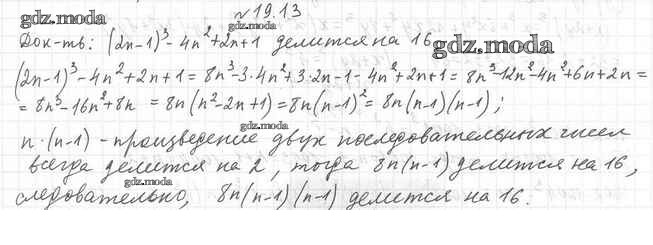 №19.13
gdz.moda
Док-ть: (2n-1)³-4n²+2n+1 делится на 16
gdz.moda
gdz.moda
(2n-1)³-4n²+2n+1=8n³-3·4n²+3·2n-1-4n²+2n+1=8n³-12n²-4n²+6n+2n=
=8n³-16n²+8n=8n(n²-2n+1)=8n(n-1)²=8n(n-1)(n-1);
gdz.moda
n·(n-1)-произведение двух последовательных чисел
всегда делится на 2, тогда 8n(n-1) делится на 16,
gdz.moda
следовательно, 8n(n-1)(n-1) делится на 16.